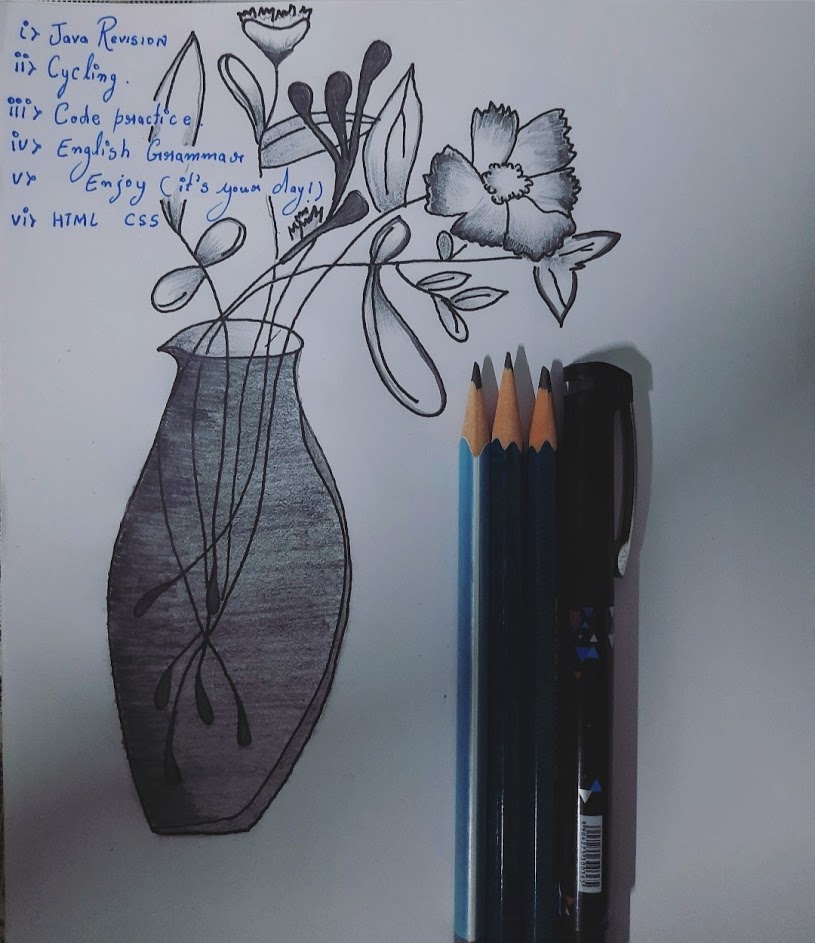 i> Java Revision
ii> Cycling.
iii> Code practice.
iv> English Grammar
v> Enjoy (it's your day!)
vi> HTML CSS